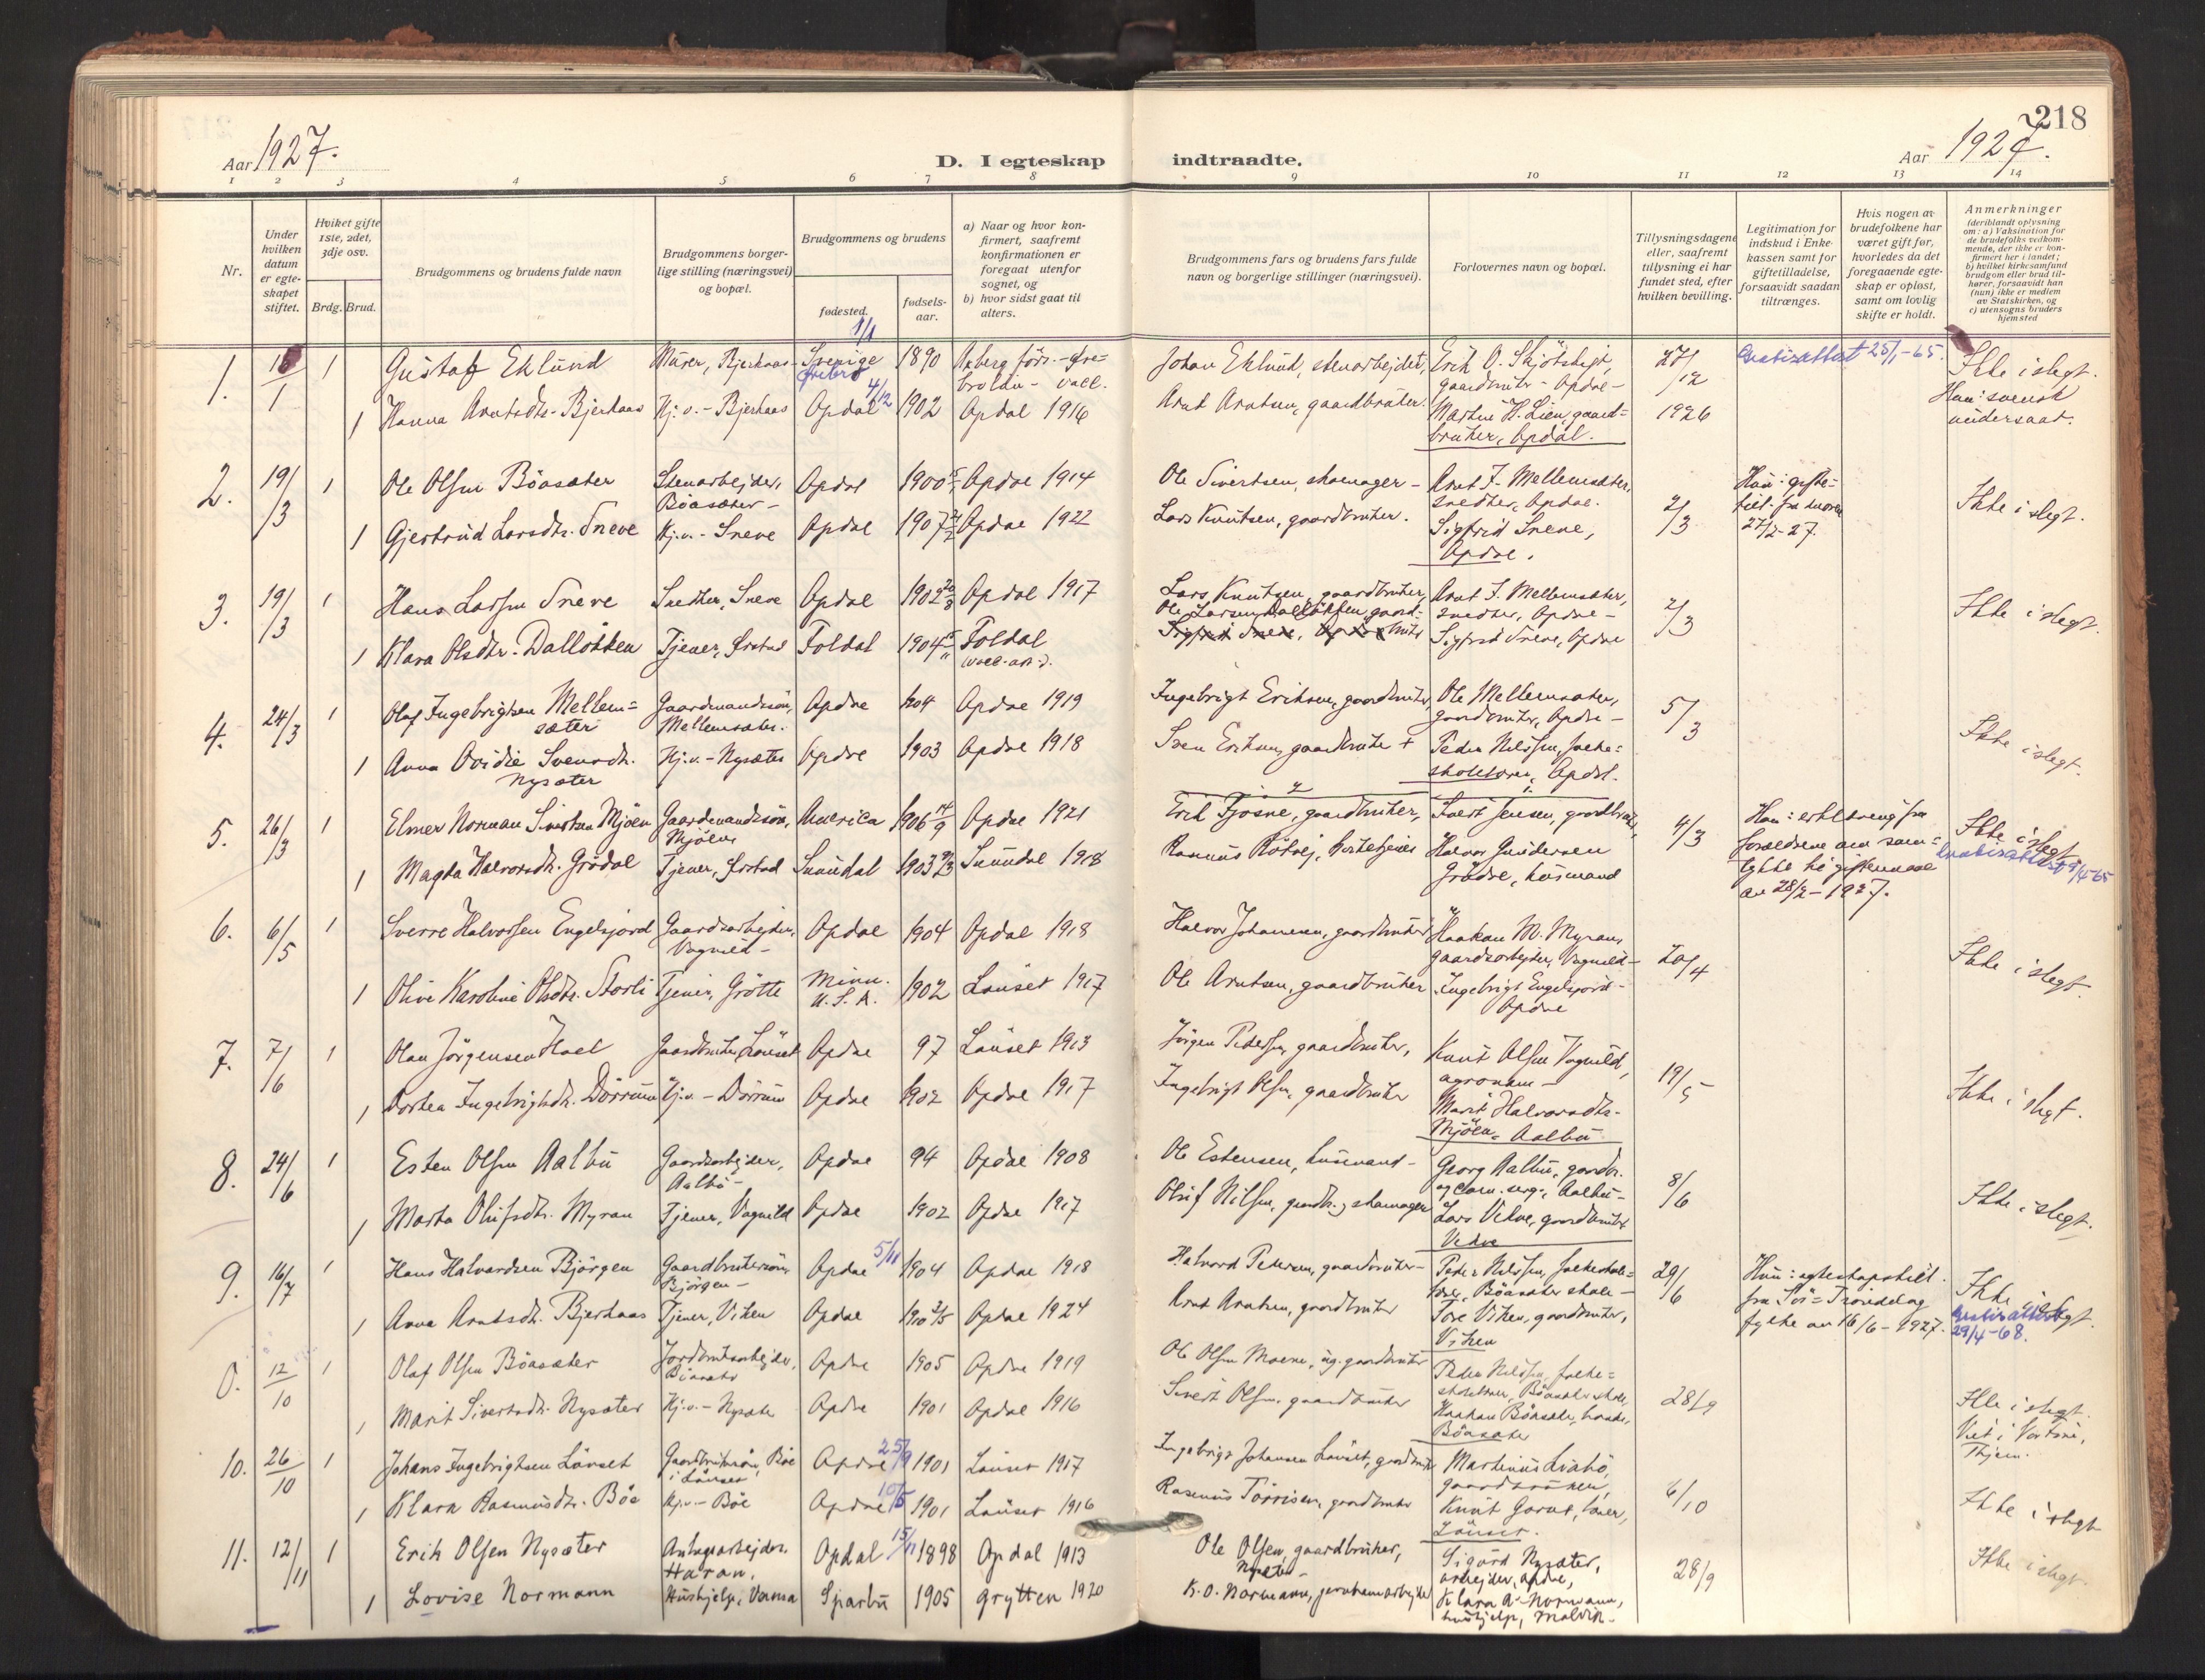 218
Aar 1927.
D. I egteskap indtraadte.
Aar 1927.
1 2 3 4 5 6 7 8 9 10 11 12 13 14
Nr.
Under hvilken datum er egteskapet stiftet.
Hvilket gifte 1ste, 2det, 3dje osv.
Brdg. Brud.
Brudgommens og brudens fulde navn
Brudgommens borgerlige stilling (næringsvei) og bopæl.
Brudgommens og brudens
fødested.
fødselsaar.
a) Naar og hvor konfirmert, saafremt konfirmationen er foregaat utenfor sognet, og
b) hvor sidst gaat til alters.
Brudgommens fars og brudens fars fulde navn og borgerlige stillinger (næringsvei).
Forlovernes navn og bopæl.
Tillysningsdagene eller, saafremt tillysning ei har fundet sted, efter hvilken bevilling.
Legitimation for indskud i Enkekassen samt for giftetilladelse, forsaavidt saadan tiltrænges.
Hvis nogen av brudefolkene har været gift før, hvorledes da det foregaaende egteskap er opløst, samt om lovlig skifte er holdt.
Anmerkninger
(deriblandt oplysning om: a) Vaksination for de brudefolks vedkommende, der ikke er konfirmert her i landet;
b) hvilket kirkesamfund brudgom eller brud tilhører, forsaavidt han (hun) ikke er medlem av Statskirken, og
c) utensogns bruders hjemsted
1. 1 Gustaf Eklund Murer, Bjerkaas Sverige 1/1 1890 Johan Eklund, stenarbejder, Erik O. Skjøtskift, gaardbruker - Opdal - 27/12 Gratisattest 25/1-65. Ikke i slegt.
1 Hanna Arntsdtr. Bjerkaas Hj.v. - Bjerkaas Opdal 4/12 1902 Opdal 1916 Arnt Arntsen, gaardbruker. Martin H. Lien, gaardbruker, Opdal. 1926 Han: svensk undersaat.
2. 19/3 1 Ole Olsen Böasæter Stenarbejder, Böasæter - Opdal 1900 Opdal 1914 Ole Sivertsen, skomager - Arnt I. Mellemsæter, snedker, Opdal. 2/3 Ikke i slegt.
1 Gjertrud Larsdtr. Sneve Hj.v. - Sneve Opdal 1907 Opdal 1922 Lars Knutsen, gaardbruker. Sigfrid Sneve, Opdal.
3. 19/3 1 Hans Larsen Sneve Snedker, Sneve Opdal 1902 Opdal 1917 Lars Knutsen, gaardbruker, Arnt I. Mellemsæter, snedker, Opdal - 2/3 Ikke i slegt.
1 Klara Olsdtr. Dalløkken Tjener, Foldal 1904 Foldal Ole Larsen Dalløkken, gaardbruker Sigfrid Sneve, Opdal
4. 24/3 1 Olaf Ingebrigtsen Mellemsæter Gaardmandssön, Mellemsæter. Opdal 1904 Opdal 1919 Ingebrigt Eriksen, gaardbruker, Ole Mellemsæter, gaardbruker, Opdal - 5/3 Ikke i slegt.
1 Anna Ovidie Svensdtr. Nysæter Hj.v. - Nysæter Opdal 1903 Opdal 1918 Sven Eriksen, gaardbruker + Peder Nilssen, folkeskolelærer, Opdal.
5. 26/3 1 Elmer Norman Sivertsen Mjöen Gaardmandssön, Mjöen America 1906 14/9 Opdal 1921 Erik Fjøsne, gaardbruker, Ivert Jensen, gaardbruker, 4/3 Ikke i slegt.
1 Magda Halvorsdtr. Grödal Tjener, Sunndal 1903 Sunndal 1918 Halvor Gundersen Grödal, husmand Gratisattest 9/4-65
6. 6/5 1 Sverre Halvorsen Engelsjord Gaardsarbejder, Vognild - Opdal 1904 Opdal 1918 Halvor Johannesen, gaardbruker Haakon M. Myran, gaardsarbejder, Vognild - 20/4 Ikke i slegt.
1 Olive Karoline Olsdtr. Storli Tjener, Grötte Minn. U.S.A. 1902 Lønset 1917 Ole Arntsen, gaardbruker Ingebrigt Engelsjord - Opdal
7. 7/6 1 Olav Jörgensen Hoel Gaardbruker, Lønset Opdal 97 Lønset 1913 Jörgen Pedersen, gaardbruker, Knut Olsen Vognild, agronom - 19/5 Ikke i slegt.
1 Dortea Ingebrigtsdtr. Dörrum Hj.v. - Dörrum Opdal 1902 Opdal 1917 Ingebrigt Olsen, gaardbruker Marit Halvorsdtr. Mjöen, Aalbu
8. 24/6 1 Esten Olsen Aalbu Gaardsarbejder, Aalbu - Opdal 94 Opdal 1908 Ole Estensen, husmand - Georg Aalbu, gaardbr. 8/6 Ikke i slegt.
1 Marta Olufsdtr. Myran Tjener, Vognild Opdal 1902 Opdal 1917 Oluf Nilsen, gaardbr. skomager Lars
9. 16/7 1 Hans Halvardsen Björgen Gaardbrukersön, Björgen - Opdal 5/11 1904 Opdal 1918 Halvard Pedersen, gaardbruker - Peder Nilssen, folkeskolelærer, Böasæter skole - 29/6 Ikke i slegt.
1 Anna Arntsdtr. Bjerkaas Tjener, Viken Opdal 1910 Opdal 1924 Arnt Arntsen, gaardbruker Tore Viken, gaardbruker, Viken fra Sör-Trøndelag fylke av 16/6-1927. Gratisattest 29/4-68.
0. 12/10 1 Olaf Olsen Böasæter Jordbruksarbejder, Böasæter Opdal 1905 Opdal 1919 Ole Olsen Moene, gaardbruker Peder Nilssen, folkeskolelærer, Böasæter skole, 28/9 Ikke i slegt.
1 Marit Sivertsdtr. Nysæter Hj.v. - Nysæter Opdal 1901 Opdal 1916 Sivert Olsen, gaardbruker Haakon Böasæter, Böasæter
10. 26/10 1 Johans Ingebrigtsen Lönset Gaardbrukersön, Böe i Lönset Opdal 25/9 1901 Lönset 1917 Ingebrigt Johansen Lönset, gaardbruker Martinus Liabö, 6/10 Ikke i slegt
1 Klara Rasmusdtr. Böe Hj.v. - Böe Opdal 10/5 1901 Lönset 1916 Rasmus Törrisen, gaardbruker Knut Gorset, lærer, Lönset.
11. 12/11 1 Erik Olsen Nysæter Anlægsarbejder. Haran. Opdal 15/11 1898 Opdal 1913 Ole Olsen, gaardbruker, Nysæter - Sigurd Nysæter, arbejder, Opdal, 28/9 Ikke i slegt.
1 Lovise Normann Hushjelp, Sparbu 1905 Grytten 1920 K.O. Normann, jernbanearbejder Klara A. Normann, hushjelp, Malvik -